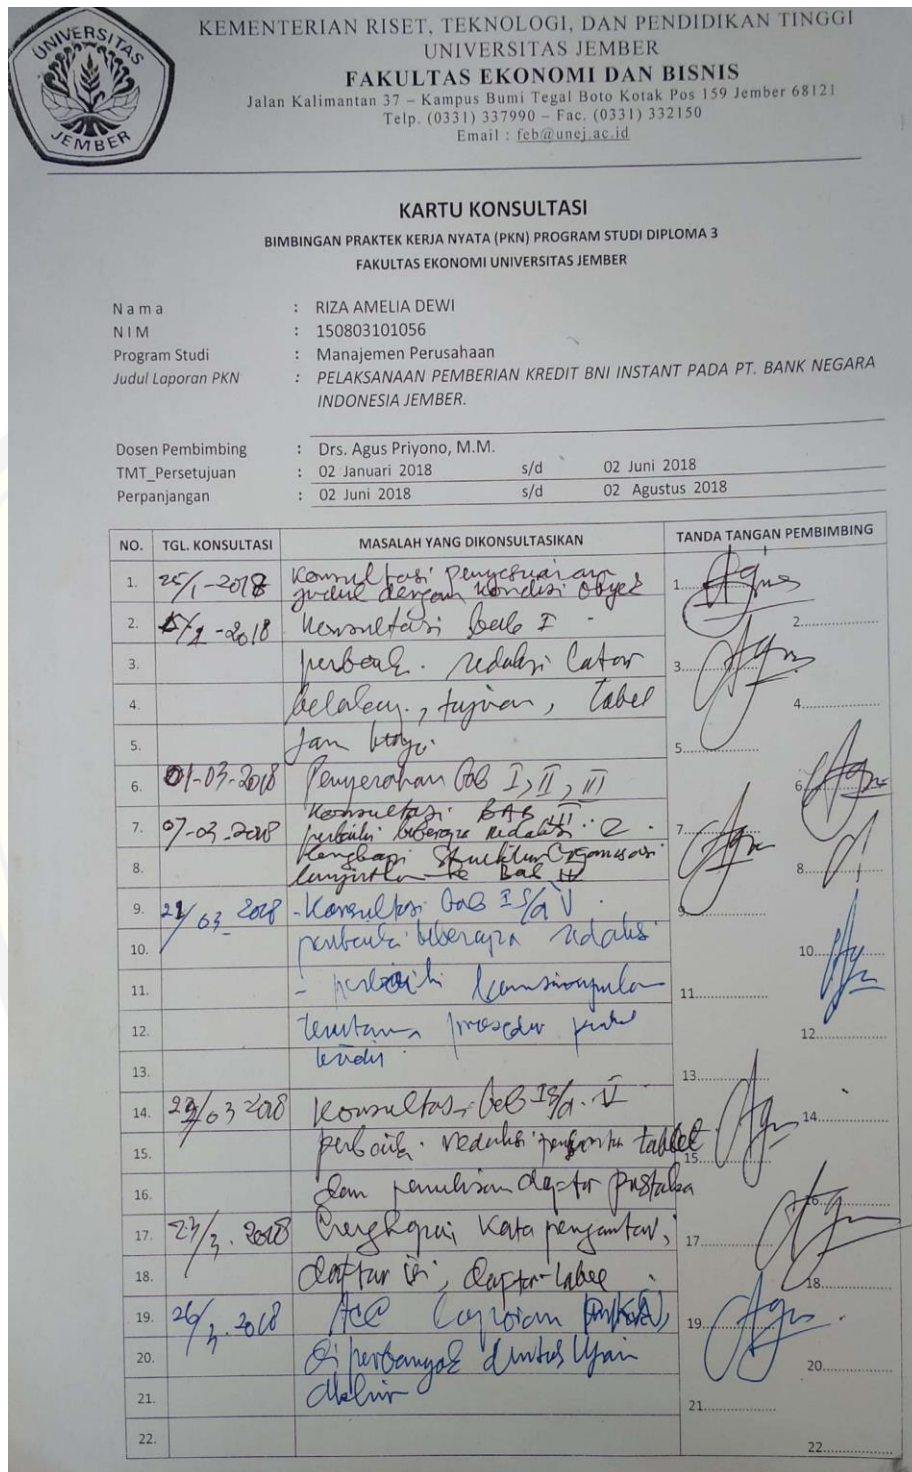 UNIVERSITAS
JEMBER
KEMENTERIAN RISET, TEKNOLOGI, DAN PENDIDIKAN TINGGI
UNIVERSITAS JEMBER
FAKULTAS EKONOMI DAN BISNIS
Jalan Kalimantan 37 – Kampus Bumi Tegal Boto Kotak Pos 159 Jember 68121
Telp. (0331) 337990 – Fac. (0331) 332150
Email : feb@unej.ac.id
KARTU KONSULTASI
BIMBINGAN PRAKTEK KERJA NYATA (PKN) PROGRAM STUDI DIPLOMA 3
FAKULTAS EKONOMI UNIVERSITAS JEMBER
N a m a : RIZA AMELIA DEWI
N I M : 150803101056
Program Studi : Manajemen Perusahaan
Judul Laporan PKN : PELAKSANAAN PEMBERIAN KREDIT BNI INSTANT PADA PT. BANK NEGARA
INDONESIA JEMBER.
Dosen Pembimbing : Drs. Agus Priyono, M.M.
TMT_Persetujuan : 02 Januari 2018 s/d 02 Juni 2018
Perpanjangan : 02 Juni 2018 s/d 02 Agustus 2018
NO. TGL. KONSULTASI MASALAH YANG DIKONSULTASIKAN TANDA TANGAN PEMBIMBING
1. 25/1-2018 Konsultasi penyesuaian
judul dengan kondisi obyek 1
2. -2018 Konsultasi bab I 2
3. perbaik. redaksi latar 3
4. belakang, tujuan, tabel 4
5. dan 5
6. 01-03-2018 Penyerahan bab I, II, III 6
7. 07-03-2018 Konsultasi BAB III
perbaiki beberapa redaksi 7
8. Lengkapi Struktur Organisasi
lanjutkan ke Bab IV 8
9. 21/03-2018 - Konsultasi bab I s/d V 9
10. perbaiki beberapa redaksi 10
11. - perbaiki kesimpulan 11
12. terutama prosedur 12
13. kredit 13
14. /03 2018 Konsultasi bab I s/d V 14
15. perbaik. redaksi tabel 15
16. dan penulisan daftar pustaka 16
17. 23/3.2018 Lengkapi kata pengantar, 17
18. daftar isi, daftar tabel 18
19. 26/3.2018 Acc laporan 19
20. diperbanyak untuk Ujian 20
21. akhir 21
22. 22